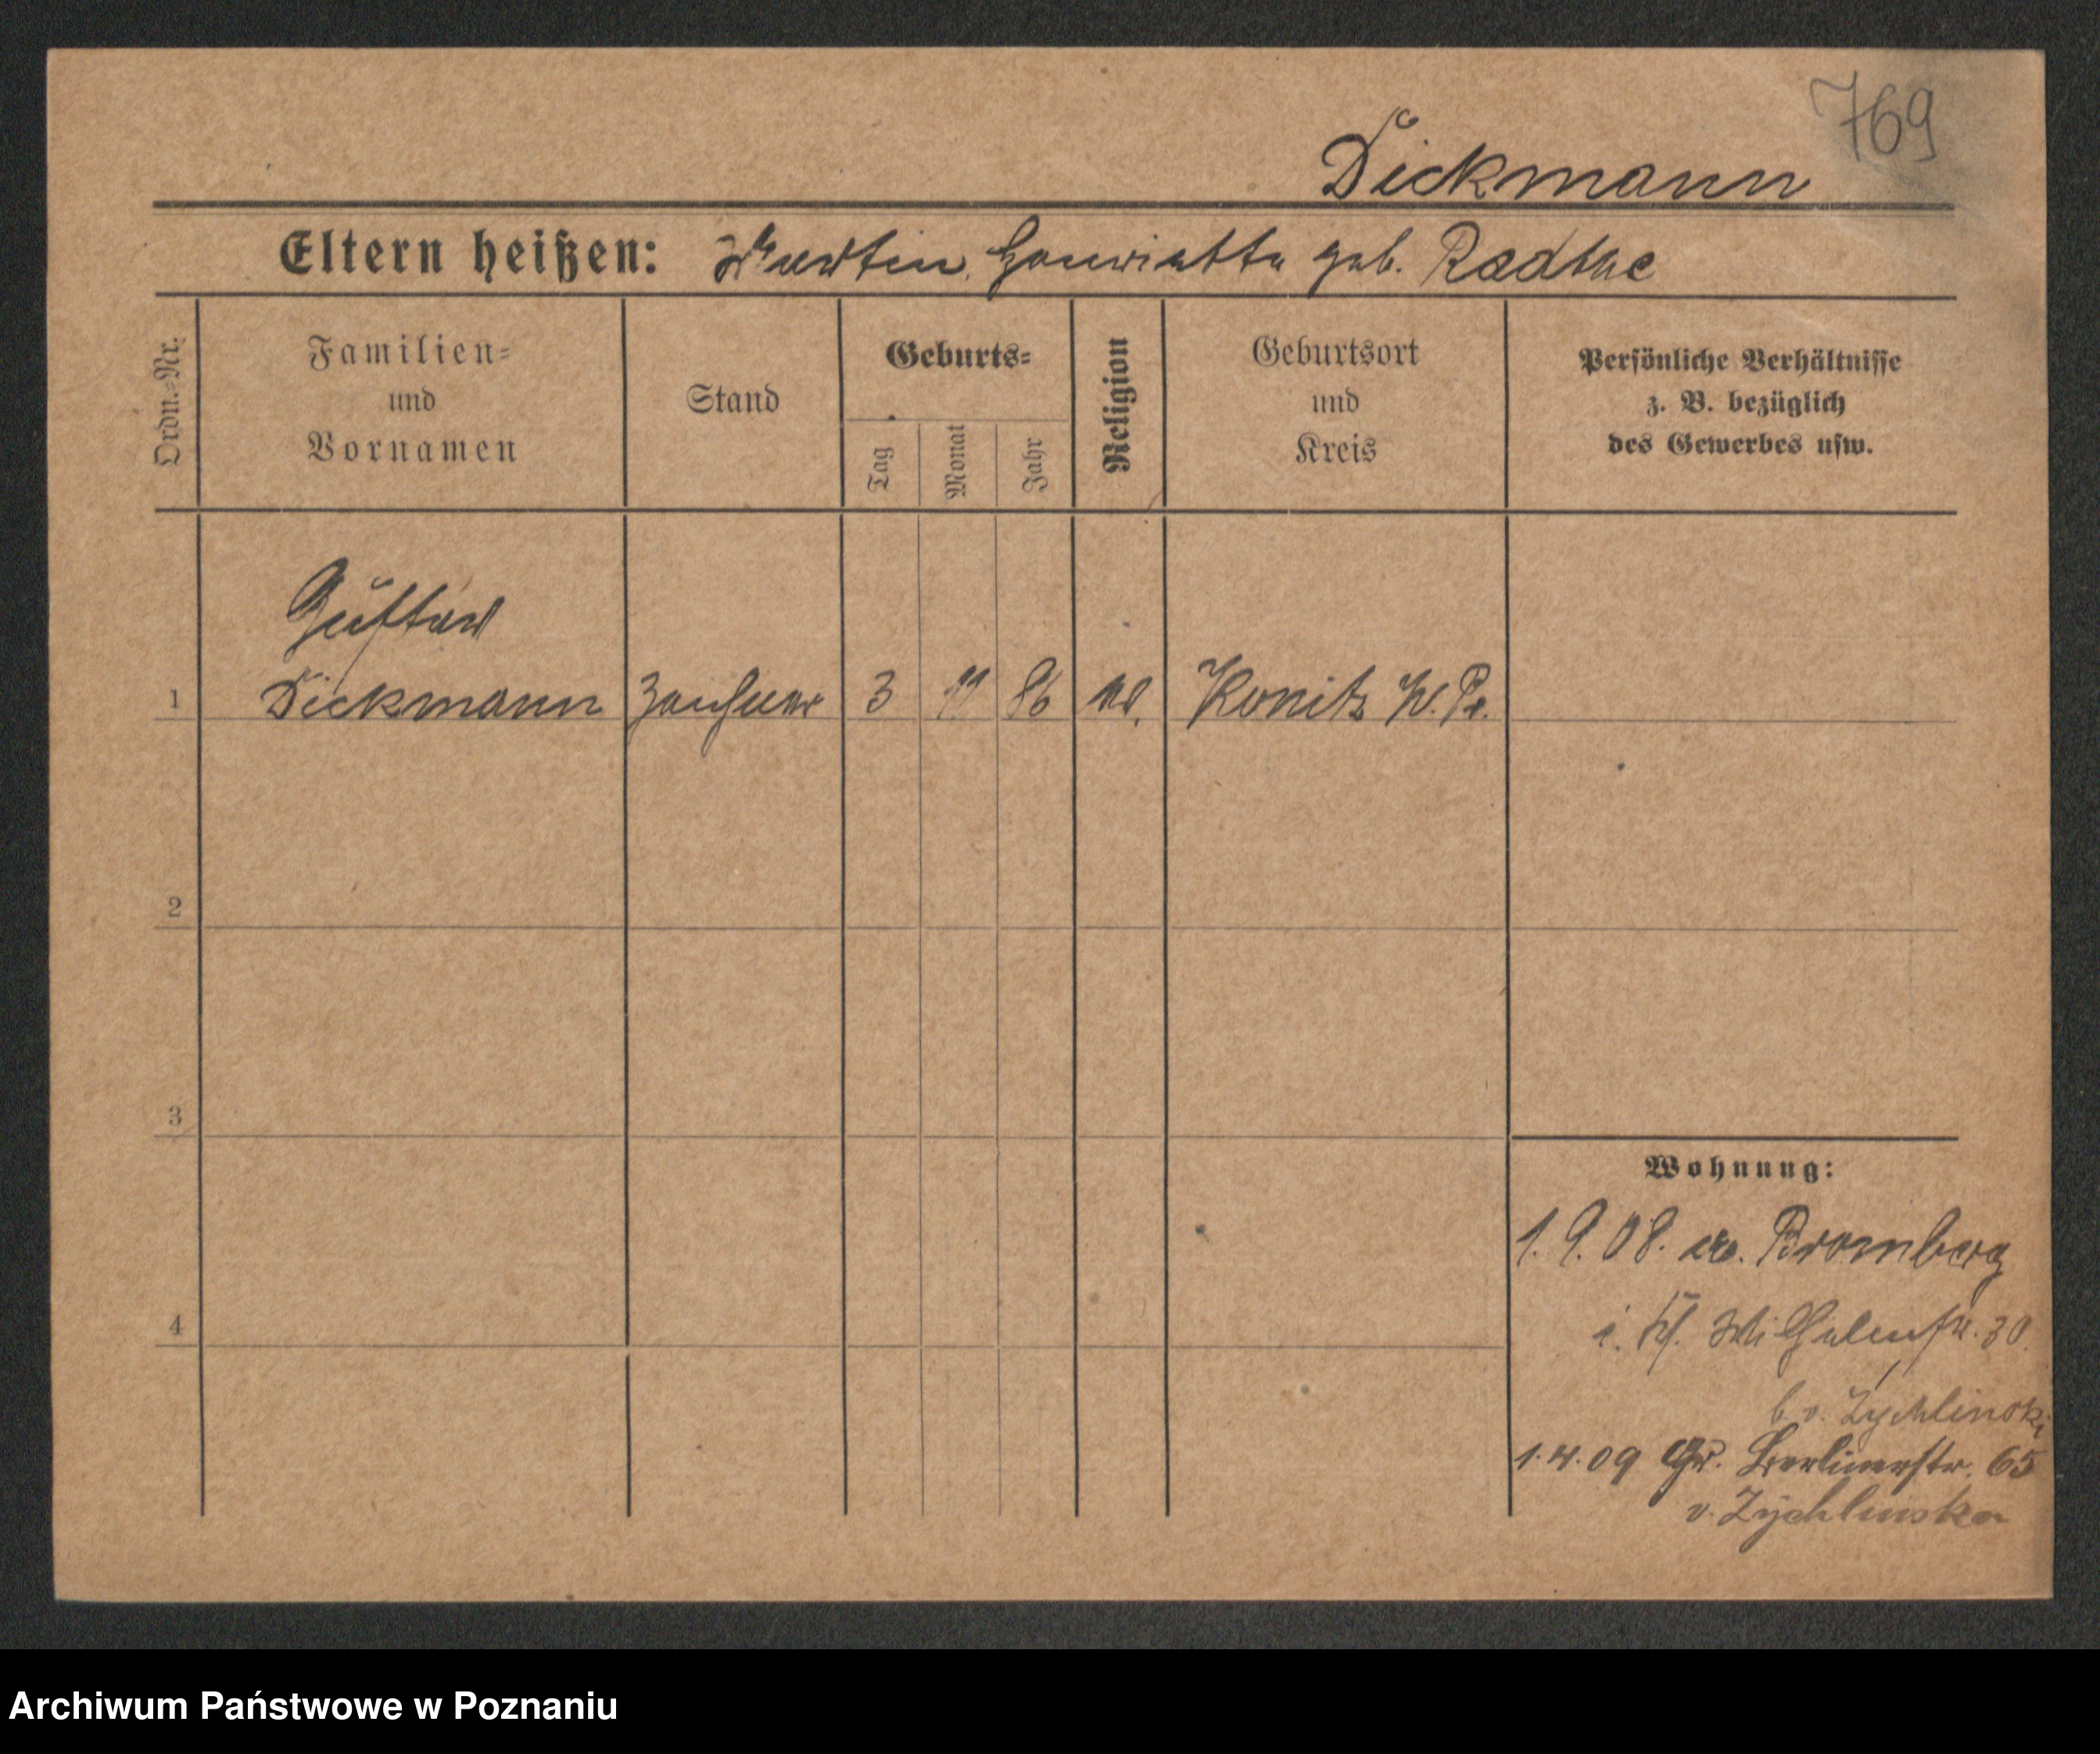 769
Dickmann
Eltern heißen: Martin, Henriette geb. Radtke
Ordn.-Nr.
Familien-
und
Vornamen
Stand
Geburts-
Tag
Monat
Jahr
Religion
Geburtsort
und
Kreis
Persönliche Verhältnisse
z. B. bezüglich
des Gewerbes usw.
Gustav
1 Dickmann Zeichner 3 11 86 ev. Konitz W. Pr.
2
3
4
Wohnung:
1.9.08. Bromberg
Wilhelmstr. 30.
b. v. Zychlinski
1.4.09 Gr. Berlinerstr. 65
v. Zychlinska
Archiwum Państwowe w Poznaniu